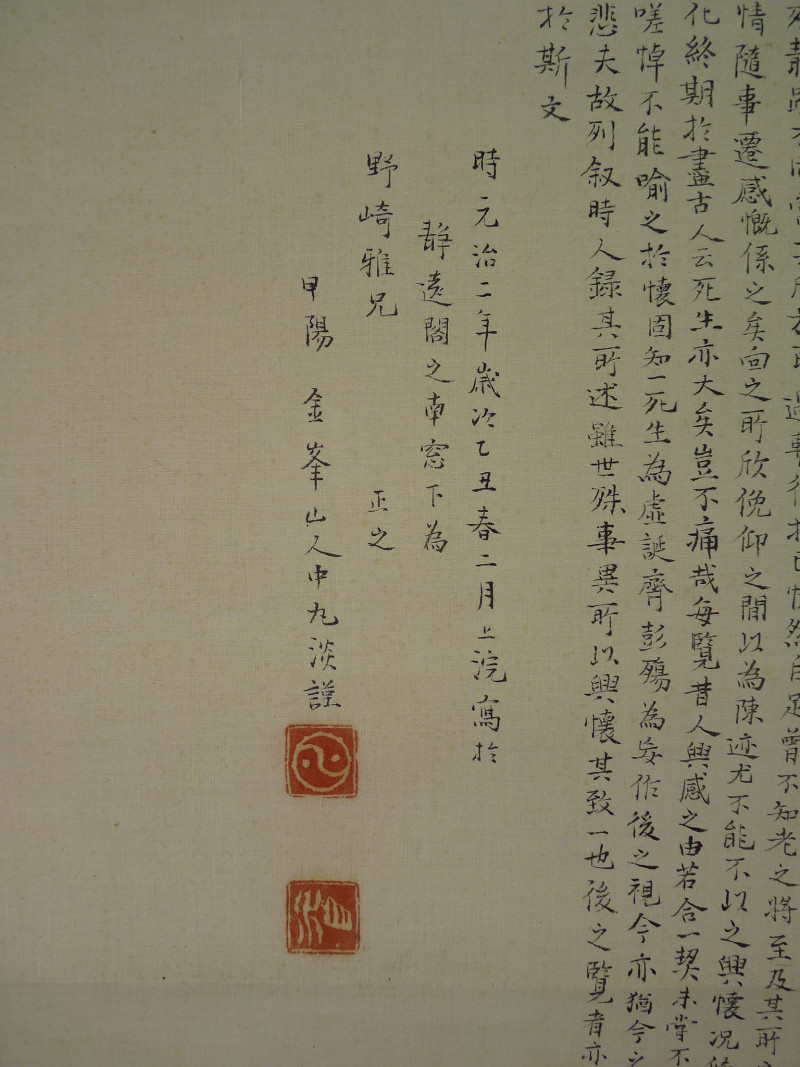 自足曾不知老之將至及其所
情隨事遷感慨係之矣向之所欣俛仰之間以為陳迹尤不能不以之興懷況
化終期於盡古人云死生亦大矣豈不痛哉每覽昔人興感之由若合一契未嘗不
嗟悼不能喻之於懷固知一死生為虛誕齊彭殤為妄作後之視今亦猶今之
悲夫故列叙時人録其所述雖世殊事異所以興懷其致一也後之覽者亦
於斯文
時元治二年歲次乙丑春二月上浣寫於
靜遠閣之南窓下為
野崎雅兄 正之
甲陽 金峯山人中九淡謹